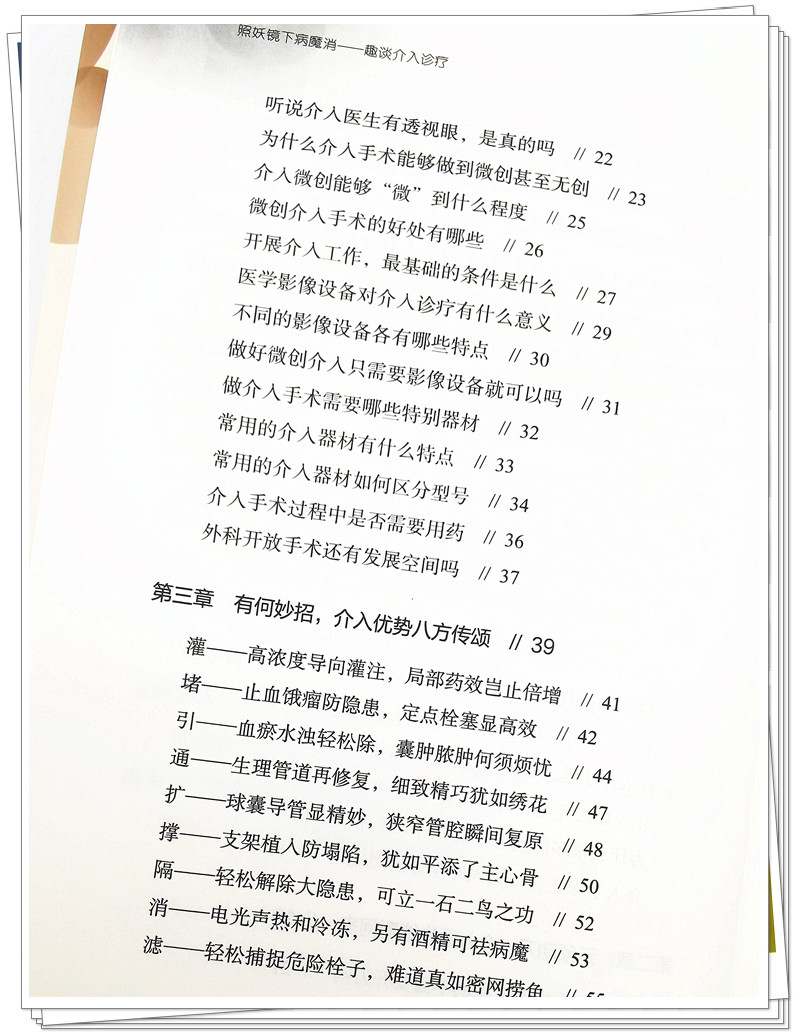 照妖镜下病魔消——趣谈介入诊疗
听说介入医生有透视眼，是真的吗 // 22
为什么介入手术能够做到微创甚至无创 // 23
介入微创能够“微”到什么程度 // 25
微创介入手术的好处有哪些 // 26
开展介入工作，最基础的条件是什么 // 27
医学影像设备对介入诊疗有什么意义 // 29
不同的影像设备各有哪些特点 // 30
做好微创介入只需要影像设备就可以吗 // 31
做介入手术需要哪些特别器材 // 32
常用的介入器材有什么特点 // 33
常用的介入器材如何区分型号 // 34
介入手术过程中是否需要用药 // 36
外科开放手术还有发展空间吗 // 37
第三章 有何妙招，介入优势八方传颂 // 39
灌——高浓度导向灌注，局部药效岂止倍增 // 41
堵——止血饿瘤防隐患，定点栓塞显高效 // 42
引——血瘀水浊轻松除，囊肿脓肿何须烦忧 // 44
通——生理管道再修复，细致精巧犹如绣花 // 47
扩——球囊导管显精妙，狭窄管腔瞬间复原 // 48
撑——支架植入防塌陷，犹如平添了主心骨 // 50
隔——轻松解除大隐患，可立一石二鸟之功 // 52
消——电光声热和冷冻，另有酒精可祛病魔 // 53
滤——轻松捕捉危险栓子，难道真如密网捞鱼 //